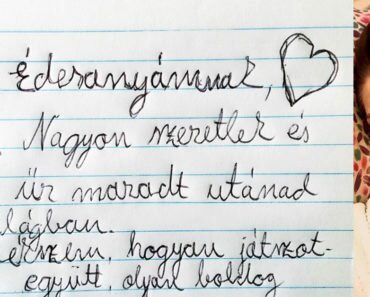 Édesanyámnak,
Nagyon szeretlek és
űr maradt utánad
lágban.
érzem, hogyan játszot-
együtt, olyan boldog